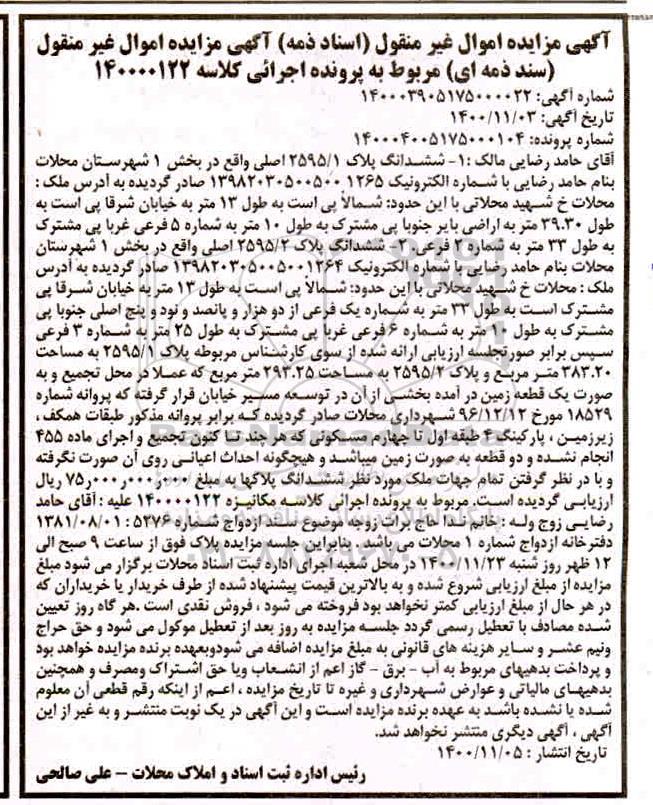 آگهی مزایده اموال غیر منقول (اسناد ذمه) آگهی مزایده اموال غیر منقول
(سند ذمه ای) مربوط به پرونده اجرائی کلاسه ۱۴۰۰۰۰۱۲۲
شماره آگهی: ۱۴۰۰۰۳۹۰۵۱۷۵۰۰۰۰۲۲
تاریخ آگهی: ۱۴۰۰/۱۱/۰۳
شماره پرونده: ۱۴۰۰۰۴۰۰۵۱۷۵۰۰۰۱۰۴
آقای حامد رضایی مالک :۱- ششدانگ پلاک ۲۵۹۵/۱ اصلی واقع در بخش ۱ شهرستان محلات
بنام حامد رضایی با شماره الکترونیک ۱۳۹۸۲۰۳۰۵۰۰۵۰۰ ۱۲۶۵ صادر گردیده به آدرس ملک :
محلات خ شهید محلاتی با این حدود: شمالاً پی است به طول ۱۳ متر به خیابان شرقا پی است به
طول ۳۹.۳۰ متر به اراضی بایر جنوبا پی مشترک به طول ۱۰ متر به شماره ۵ فرعی غربا پی مشترک
به طول ۳۳ متر به شماره ۲ فرعی، ۲- ششدانگ پلاک ۲۵۹۵/۲ اصلی واقع در بخش ۱ شهرستان
محلات بنام حامد رضایی با شماره الکترونیک ۱۳۹۸۲۰۳۰۵۰۰۵۰۰۱۲۶۴ صادر گردیده به آدرس
ملک : محلات خ شهید محلاتی با این حدود: شمالاً پی است به طول ۱۳ متر به خیابان شرقا پی
مشترک است به طول ۳۳ متر به شماره یک فرعی از دو هزار و پانصد و نود و پنج اصلی جنوبا پی
مشترک به طول ۱۰ متر به شماره ۶ فرعی غربا پی مشترک به طول ۲۵ متر به شماره ۳ فرعی
سپس برابر صورتجلسه ارزیابی ارائه شده از سوی کارشناس مربوطه پلاک ۲۵۹۵/۱ به مساحت
۳۸۳.۲۰ متر مربع و پلاک ۲۵۹۵/۲ به مساحت ۲۹۳.۲۵ متر مربع که عملا در محل تجمیع و به
صورت یک قطعه زمین در آمده بخشی از آن در توسعه مسیر خیابان قرار گرفته که پروانه شماره
۱۸۵۲۹ مورخ ۹۶/۱۲/۱۲ شهرداری محلات صادر گردیده که برابر پروانه مذکور طبقات همکف ،
زیرزمین ، پارکینگ ۴ طبقه اول تا چهارم مسکونی که هر چند تا کنون تجمیع و اجرای ماده ۴۵۵
انجام نشده و دو قطعه به صورت زمین میباشد و هیچگونه احداث اعیانی روی آن صورت نگرفته
و با در نظر گرفتن تمام جهات ملک مورد نظر ششدانگ پلاکها به مبلغ ۷۵٫۰۰۰٫۰۰۰٫۰۰۰ ریال
ارزیابی گردیده است. مربوط به پرونده اجرائی کلاسه مکانیزه ۱۴۰۰۰۰۱۲۲ علیه : آقای حامد
رضایی زوج وله : خانم ندا حاج برات زوجه موضوع سند ازدواج شماره ۵۳۷۶ : ۱۳۸۱/۰۸/۰۱
دفترخانه ازدواج شماره ۱ محلات می باشد. بنابراین جلسه مزایده پلاک فوق از ساعت ۹ صبح الی
۱۲ ظهر روز شنبه ۱۴۰۰/۱۱/۲۳ در محل شعبه اجرای اداره ثبت اسناد محلات برگزار می شود مبلغ
مزایده از مبلغ ارزیابی شروع شده و به بالاترین قیمت پیشنهاد شده از طرف خریدار یا خریداران که
در هر حال از مبلغ ارزیابی کمتر نخواهد بود فروخته می شود ، فروش نقدی است .هر گاه روز تعیین
شده مصادف با تعطیل رسمی گردد جلسه مزایده به روز بعد از تعطیل موکول می شود و حق حراج
ونیم عشر و سایر هزینه های قانونی به مبلغ مزایده اضافه می شودوبعهده برنده مزایده خواهد بود
و پرداخت بدهیهای مربوط به آب - برق - گاز اعم از انشعاب ویا حق اشتراک ومصرف و همچنین
بدهیهای مالیاتی و عوارض شهرداری و غیره تا تاریخ مزایده ، اعم از اینکه رقم قطعی آن معلوم
شده یا نشده باشد به عهده برنده مزایده است و این آگهی در یک نوبت منتشر و به غیر از این
آگهی ، آگهی دیگری منتشر نخواهد شد.
تاریخ انتشار : ۱۴۰۰/۱۱/۰۵
رئیس اداره ثبت اسناد و املاک محلات - علی صالحی